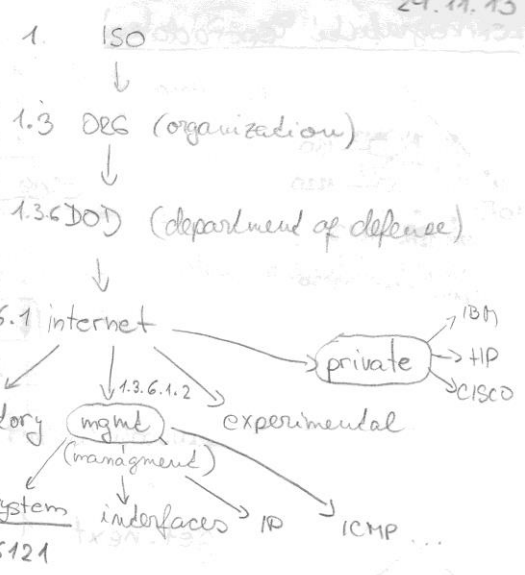 24.11.13
1. ISO
1.3 ORG (organization)
1.3.6 DOD (department of defense)
6.1 internet
IBM
private
HP
CISCO
1.3.6.1.2
tory mgmt experimental
(managment)
ystem interfaces IP ICMP ...
6121